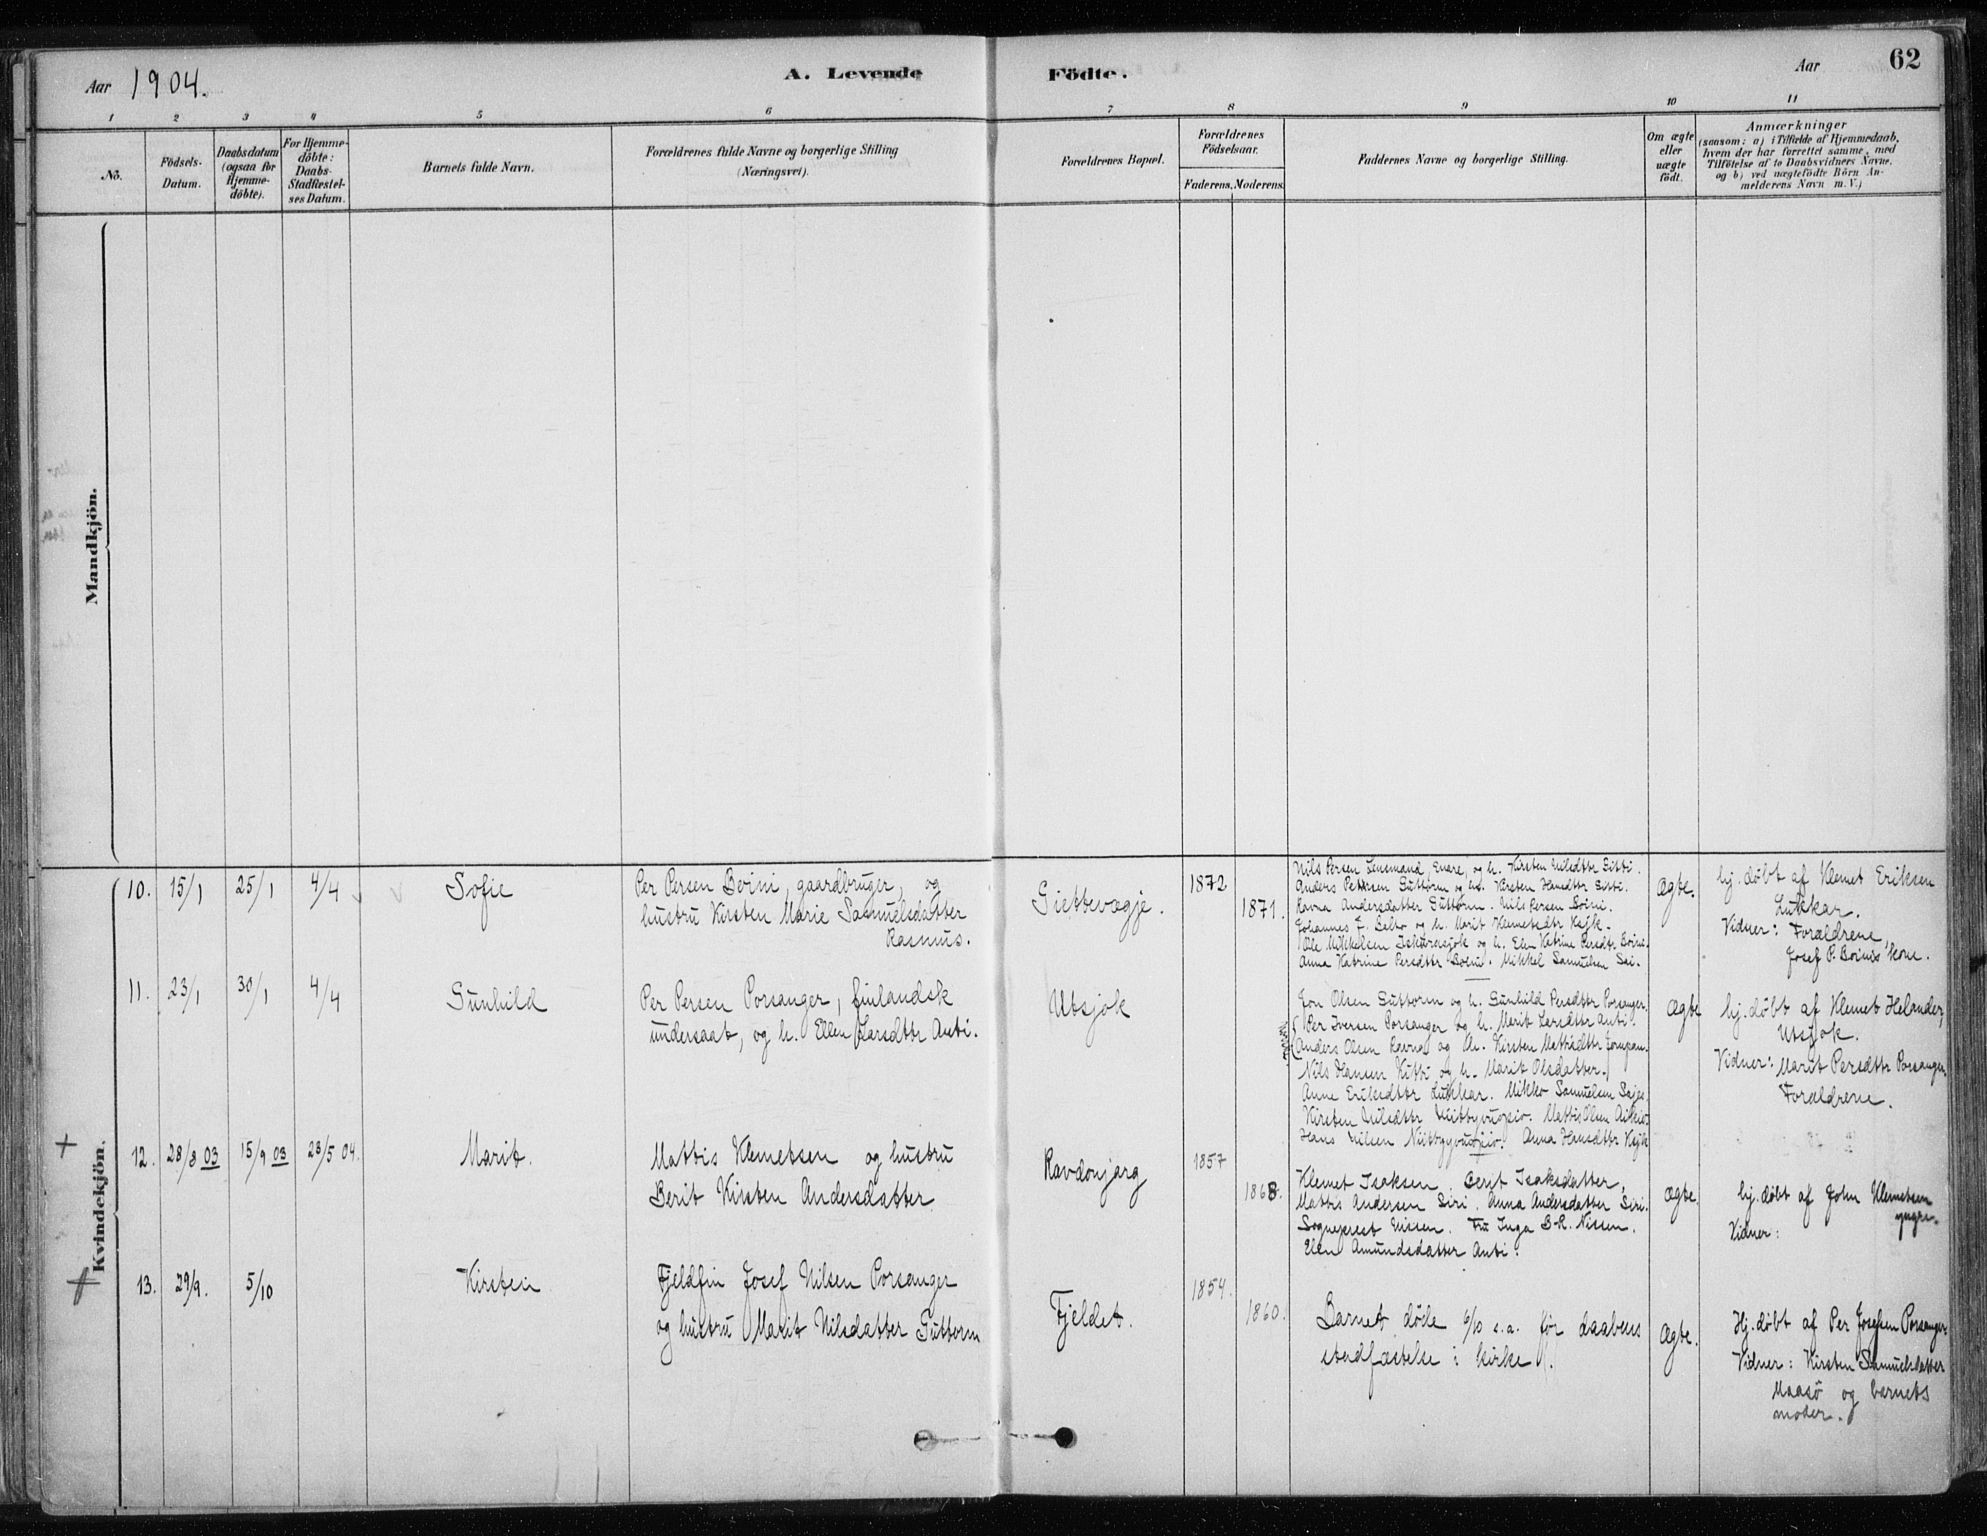 Aar 1904.
A. Levende Födte.
Aar
62
1 2 3 4 5 6 7 8 9 10 11
No.
Födsels-
Datum.
Daabsdatum
(ogsaa for
Hjemme-
döbte).
For Hjemme-
döbte:
Daabs-
Stadfæstel-
ses Datum.
Barnets fulde Navn.
Forældrenes fulde Navne og borgerlige Stilling
(Næringsvei).
Forældrenes Bopæl.
Forældrenes
Födselsaar.
Faderens. Moderens.
Faddernes Navne og borgerlige Stilling.
Om ægte
eller
uægte
födt.
Anmærkninger
(saasom: a) i Tilfælde af Hjemmedaab,
hvem der har forrettet samme, med
Tilföielse af to Daabsvidners Navne,
og b) ved uægtefödte Börn An-
melderens Navn m. V.)
Mandkjön.
Kvindekjön.
10. 15/1 25/1 4/4
Sofie
Per Persen Boini, gaardbruger, og
hustru Kirsten Marie Samuelsdatter
Rasmus.
Giettevægje.
1872
1871.
Nils Persen Lensmand, Enare, og h. Kirsten Nilsdttr
Anders Pettersen Guttorm og h. Kirsten Hansdttr
Ravna Andersdatter Guttorm. Nils Persen Boini.
Johannes og h. Marit Klemetsdttr
Ole Mikkelsen og h. Elen Katrine Persdtr. Boine.
Anna Katrine Persdttr Boini. Mikkel Samuelsen
ægte.
hj. døbt af Klemet Eriksen
Lukkar.
Vidner: Forældrene,
Josef P. Boinis kone.
11. 23/1 30/1 4/4
Gunhild
Per Persen Porsanger, finlandsk
undersaat, og h. Ellen Larsdttr Anti.
Utsjok
Jon Olsen Guttorm og h. Gunhild Persdttr Porsanger.
Per Iversen Porsanger og h. Marit Larsdttr Anti.
Anders Olsen Ravna og h. Kirsten Mathisdttr
Nils Hansen Kitti og h. Marit Olsdatter.
Anne Eriksdttr Lukkar. Mikko Samuelsen
Kirsten Nilsdttr Mattis Olsen Aikio
Hans Nilsen Anna Hansdttr
ægte
hj. døbt af Klemet Helander,
Utsjok.
Vidner: Marit Persdttr Porsanger,
Forældrene.
12. 28/8 03 15/9 03 23/5 04.
Marit.
Mattis Klemetsen og hustru
Berit Kirsten Andersdatter
Ravdonjarg
1857
1868.
Klemet Isaksen, Berit Isaksdatter,
Mattis Andersen Siri. Anna Andersdatter Siri.
Sogneprest Nissen. Fru Inga B. R. Nissen.
Elen Amundsdatter Anti.
ægte.
hj. døbt af John Klemetsen
yngre.
Vidner:
13. 29/9. 5/10
Kirsten
Fjeldfin Josef Nilsen Porsanger
og hustru Marit Nilsdatter Guttorm
Fjeldet.
1854.
1860.
Barnet døde 6/10 s.a. før daabens
stadfæstelse i kirke.
ægte.
Hj. døbt af Per Josefsen Porsanger.
Vidner: Kirsten Samuelsdatter
Maasø og barnets
moder.